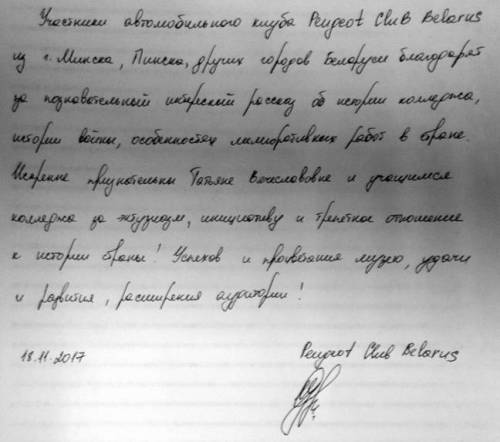 Участники автомобильного клуба Peugeot Club Belarus
из г. Минска, Пинска, других городов Беларуси благодарят
за познавательный интересный рассказ об истории колледжа,
истории войны, особенностях мелиоративных работ в стране.
Искренне признательны Татьяне Вячеславовне и учащимся
колледжа за энтузиазм, инициативу и трепетное отношение
к истории страны! Успехов и процветания музею, удачи
и развития, расширения аудитории!
18.11.2017 Peugeot Club Belarus